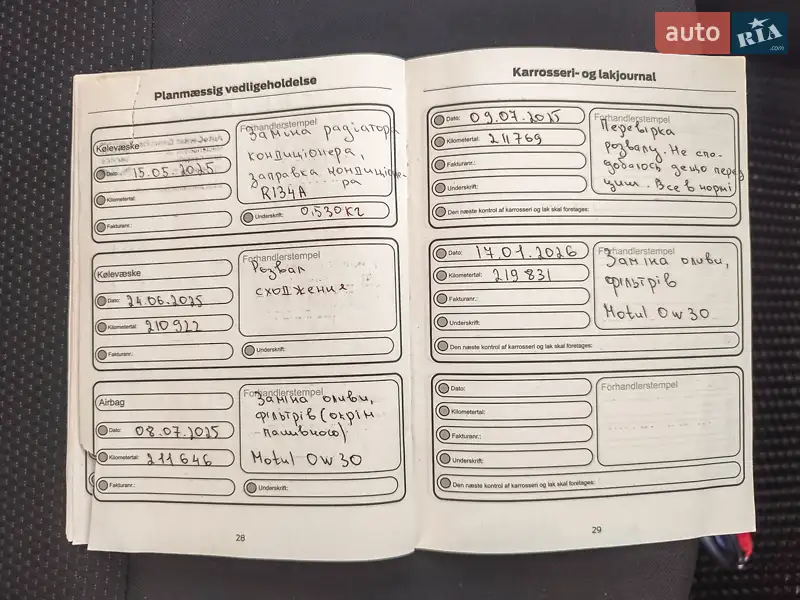 auto RIA .com
Planmæssig vedligeholdelse
Kølevæske
Dato: 15.05.2025
Kilometertal:
Fakturanr.:
Forhandlerstempel
Заміна радіатора
кондиціонера,
заправка кондиціоне-
ра
R134A
Underskrift: 0,530кг
Kølevæske
Dato: 24.06.2025
Kilometertal: 210922
Fakturanr.:
Forhandlerstempel
Розвал
сходження
Underskrift:
Airbag
Dato: 08.07.2025
Kilometertal: 211646
Fakturanr.:
Forhandlerstempel
Заміна оливи,
фільтрів (окрім
паливного)
Motul 0w30
Underskrift:
28
Karrosseri- og lakjournal
Dato: 09.07.2025
Kilometertal: 211769
Fakturanr.:
Underskrift:
Forhandlerstempel
Перевірка
розвалу. Не спо-
добалось дещо перед
цим. Все в нормі
Den næste kontrol af karrosseri og lak skal foretages:
Dato: 17.01.2026
Kilometertal: 219831
Fakturanr.:
Underskrift:
Forhandlerstempel
Заміна оливи,
фільтрів
Motul 0w30
Den næste kontrol af karrosseri og lak skal foretages:
Dato:
Kilometertal:
Fakturanr.:
Underskrift:
Forhandlerstempel
Den næste kontrol af karrosseri og lak skal foretages:
29